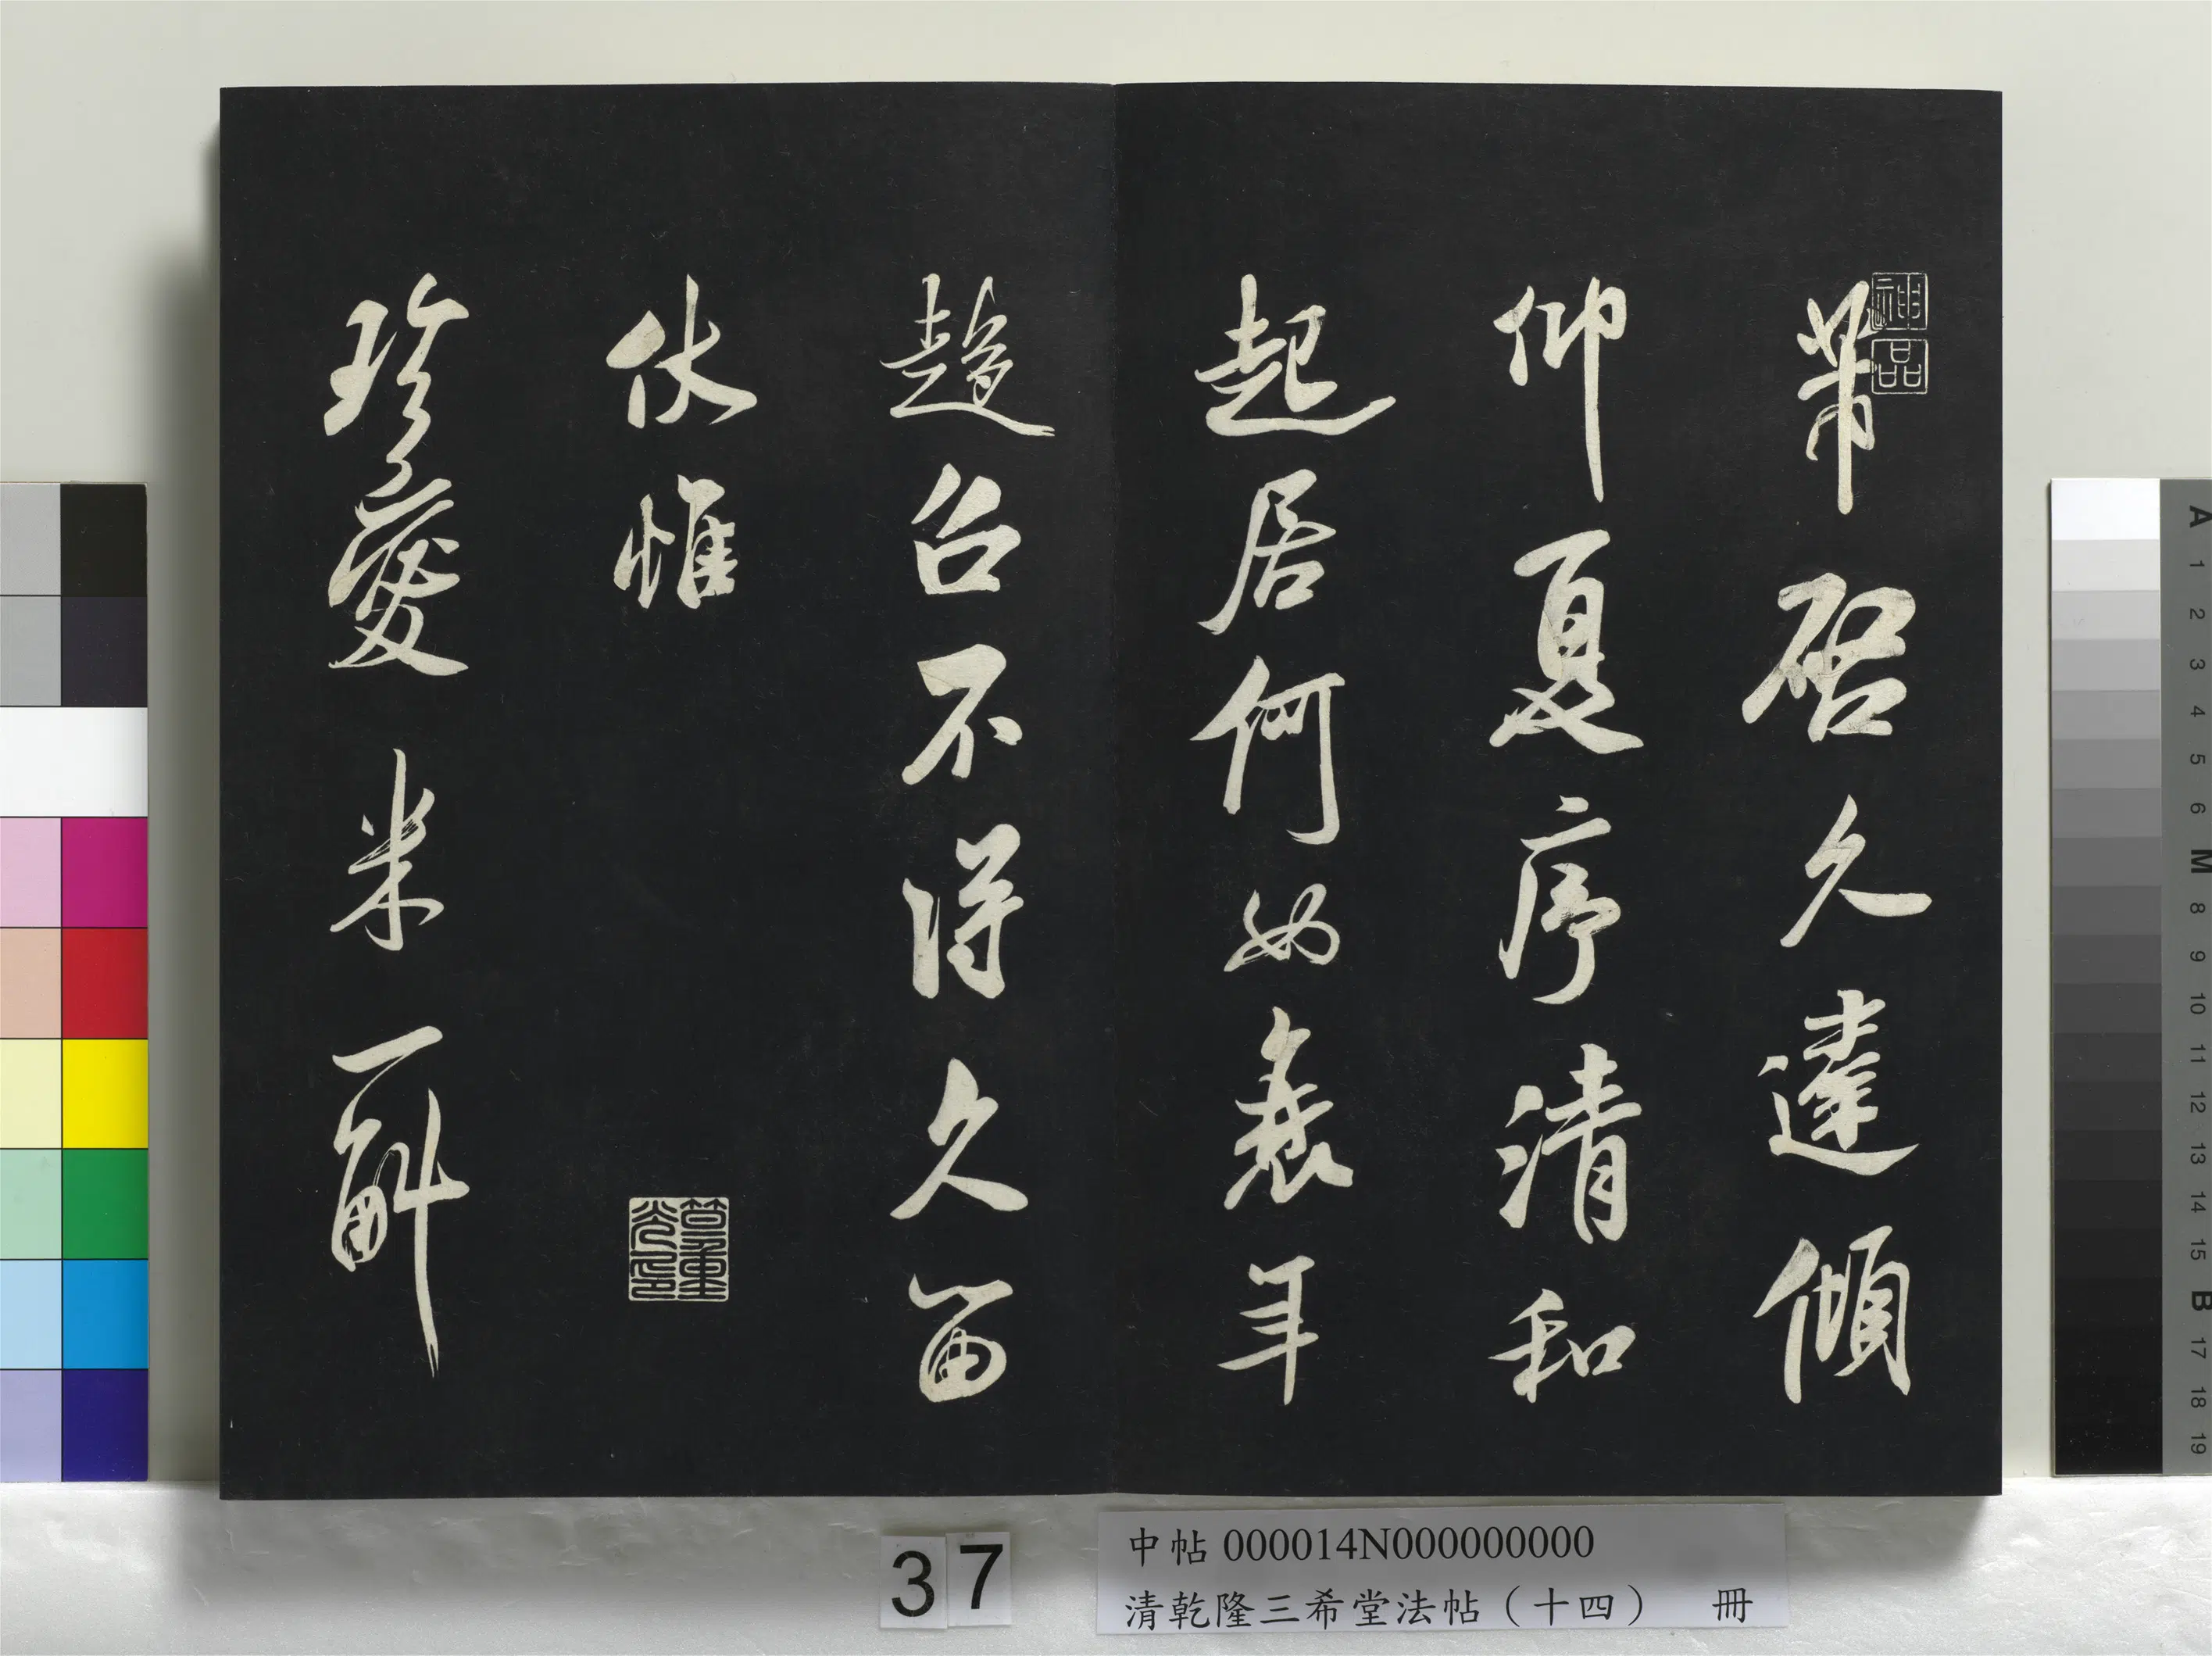 芾啓久違傾
仰夏序清和
起居何如衰年
趨召不得久留
伏惟
珍愛米一斛
神品
37
中帖 000014N000000000
清乾隆三希堂法帖（十四） 冊
A 1 2 3 4 5 6 M 8 9 10 11 12 13 14 15 B 17 18 19